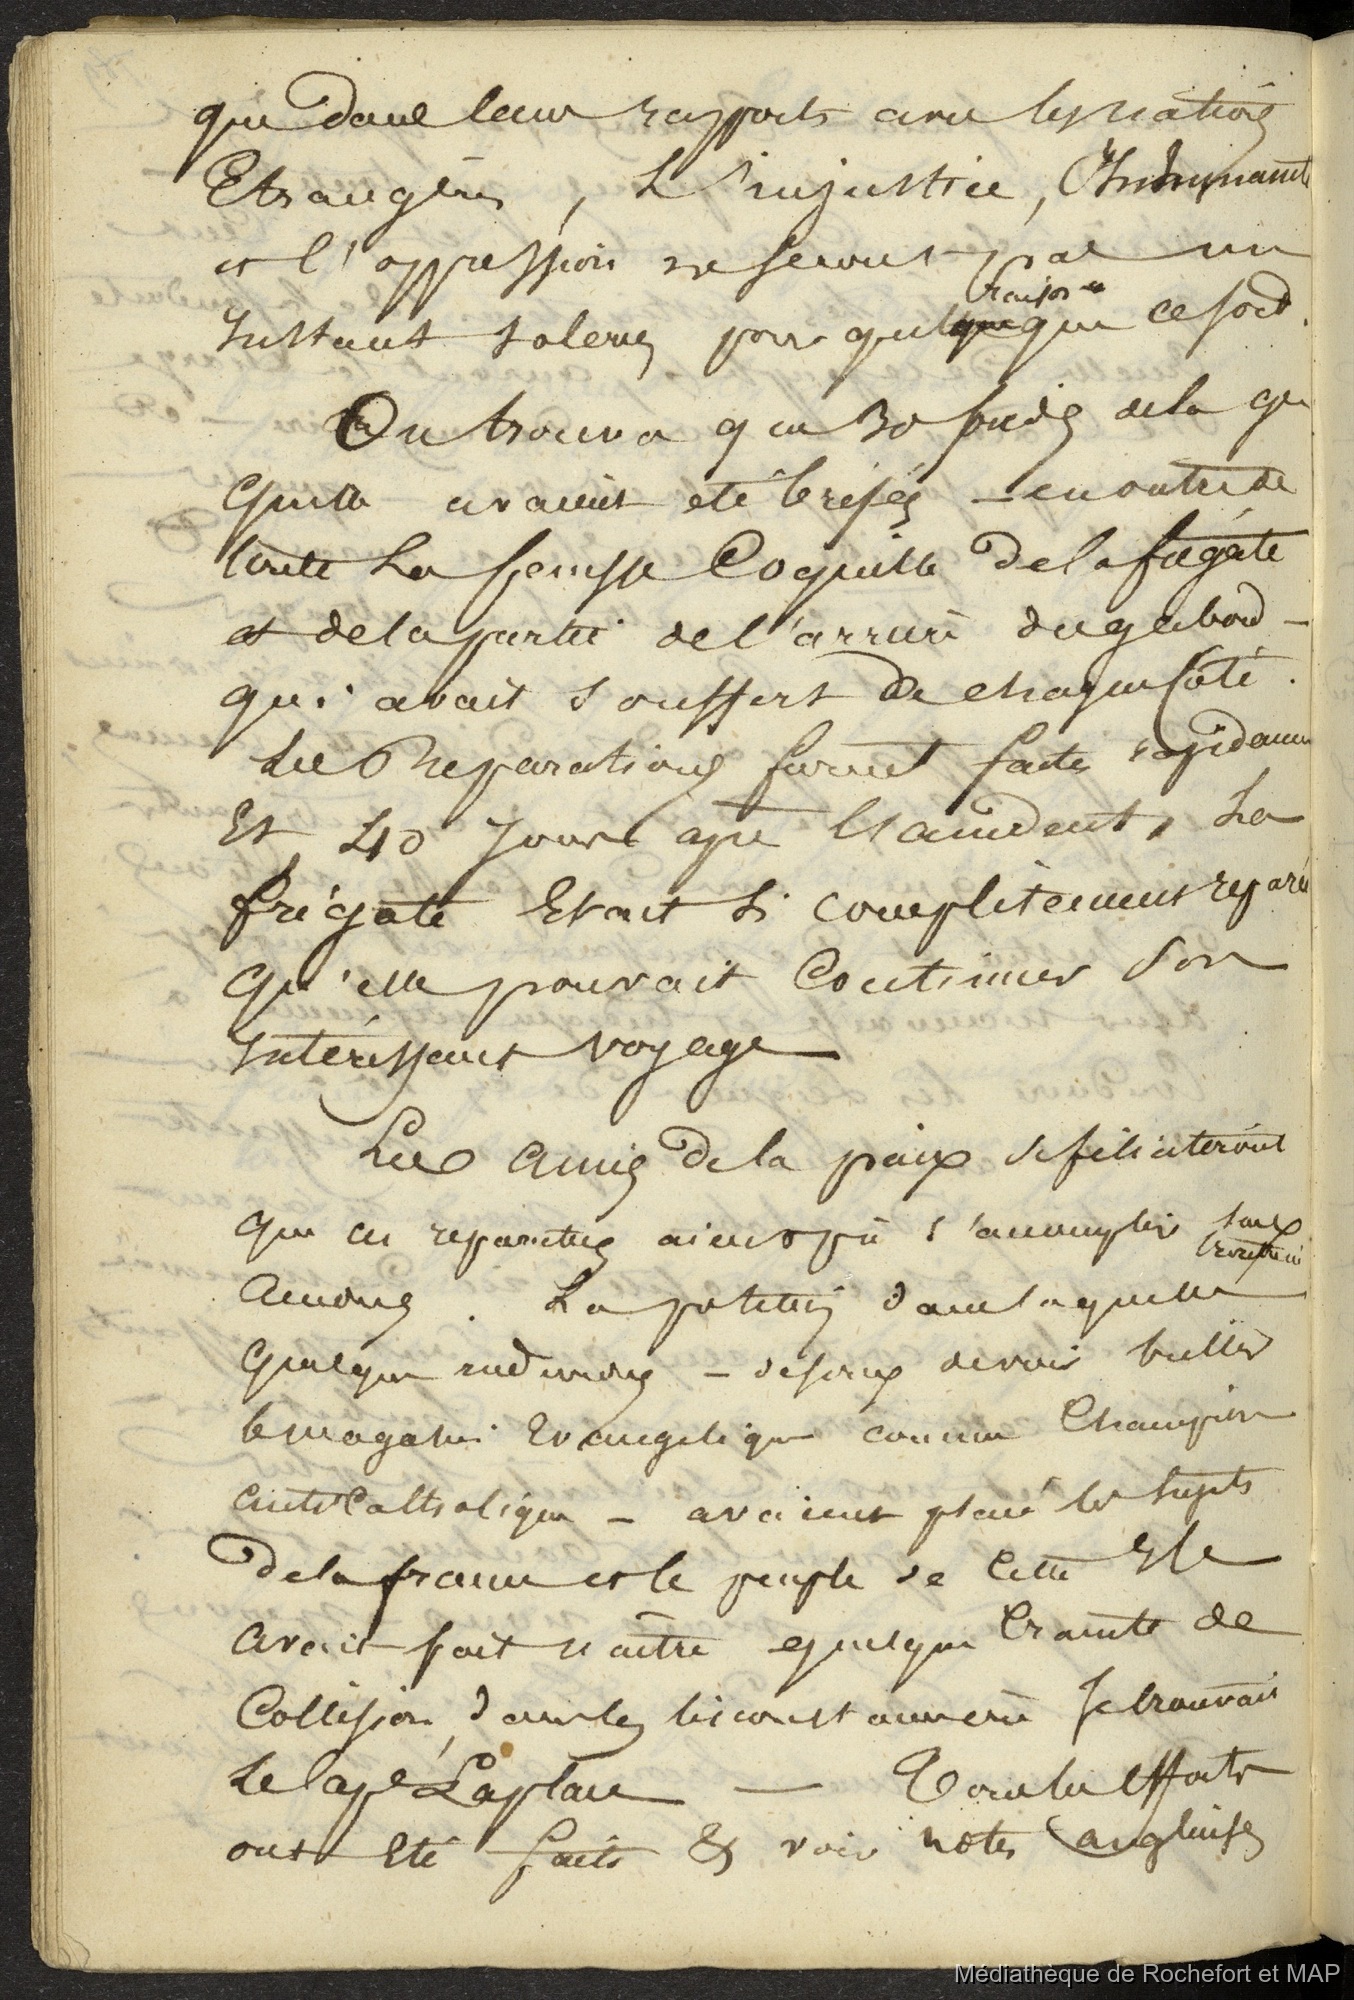 que dans leurs rapports avec les nations
Etrangères, L'injustice, l'Inhumanité
et l'oppression ne seront pas un
Instant tolerés pour quelque raison que ce soit.
On trouva que 30 pieds de la
quille avaient eté brisés – en outre de
toute La fausse Coquille de la frégate
et de la partie de l'arrière du gabord –
qui avait souffert de chaque Coté.
Les Reparations furent faites rapidamm
Et 40 Jours après l'accident, La
frégate Etait si complètement reparée
qu'elle pouvait Continuer Son
Intéressant voyage
Les amis de la paix se féliciteront
que ces reparations aient pû s'accomplir sans
. La position dans laquelle
quelques – desirant
le magasin Evangelique comme Champion
anti Catholique – avaient placé les Sujets
de la france et le peuple de Cette Isle
avait fait naître quelque Crainte de
Collision, dans les circonstances où se trouvait
Le Cape Laplace — Tous les efforts
ont Eté faits & voir notes anglaises
Médiathèque de Rochefort et MAP